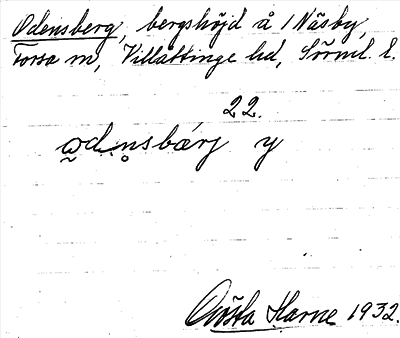 Odensberg, bergshöjd å 1 Näsby,
Torsa sn, Villåttinge hd, Sörml. l.
22.
o̰dn̥sbærj y
Gösta Harne 1932.